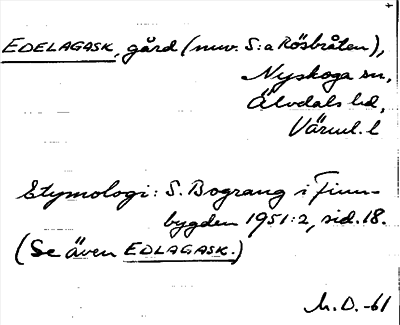 EDELAGASK, gård (nuv. S:a Rösbråten),
Nyskoga sn,
Älvdals hd,
Värml. l
Etymologi: S. Bograng i Finn-
bygden 1951:2, sid. 18.
(Se även EDLAGASK.)
M.D.-61